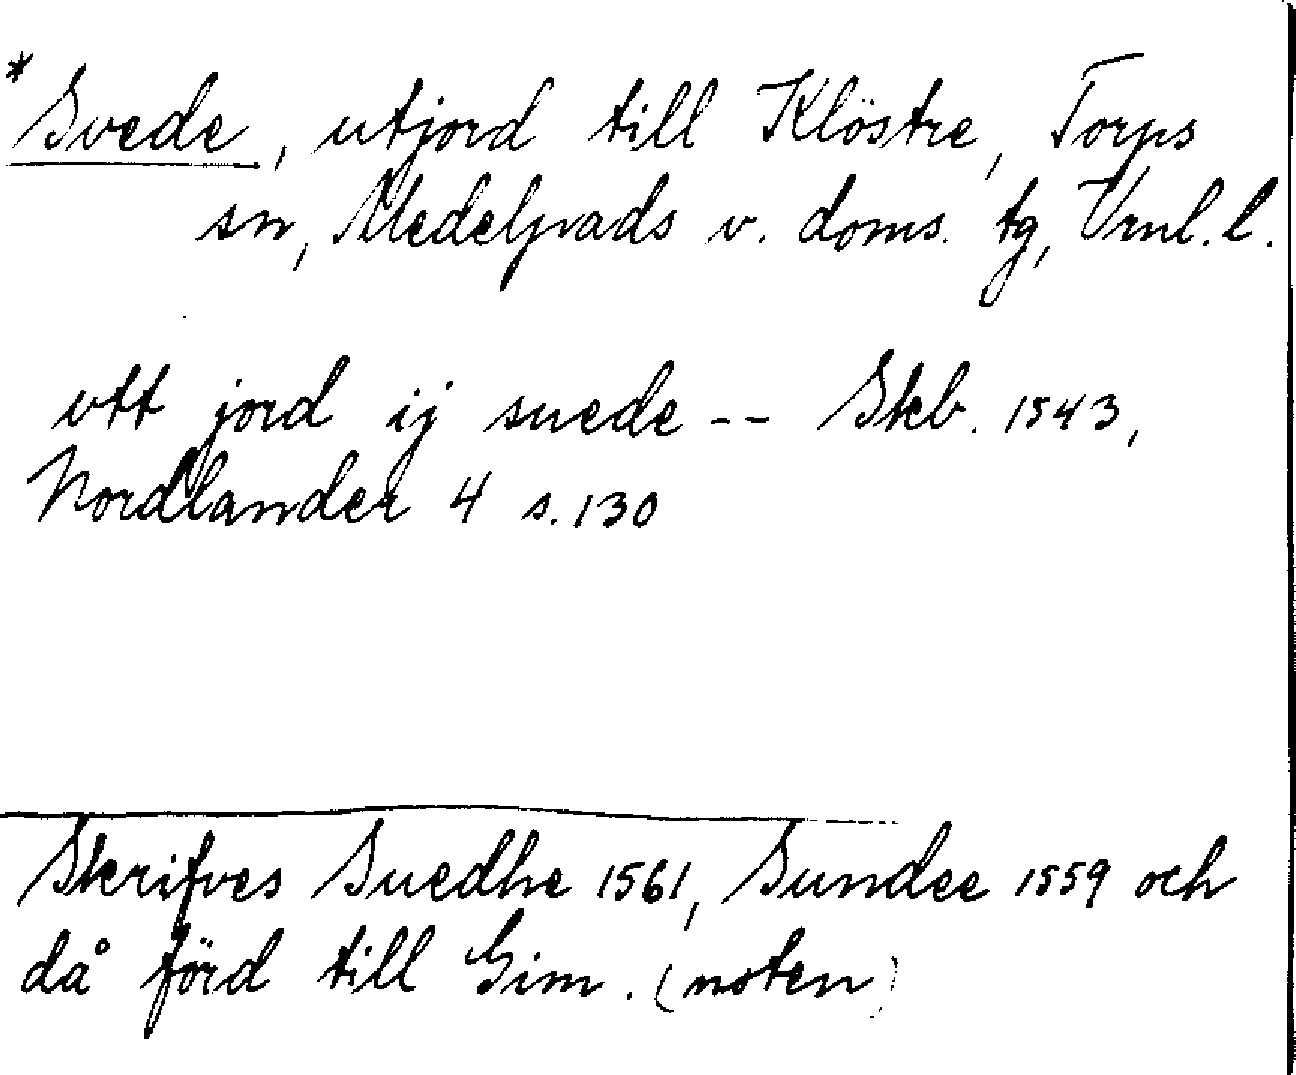 *Svede, utjord till Klöstre, Torps
sn, Medelpads v. doms. tg, Vrnl. l.
vtt jord ij suede -- Skb. 1543,
Nordlander 4 s. 130
Skrifves Suedhe 1561, Sundee 1559 och
då förd till Gim. (noten)